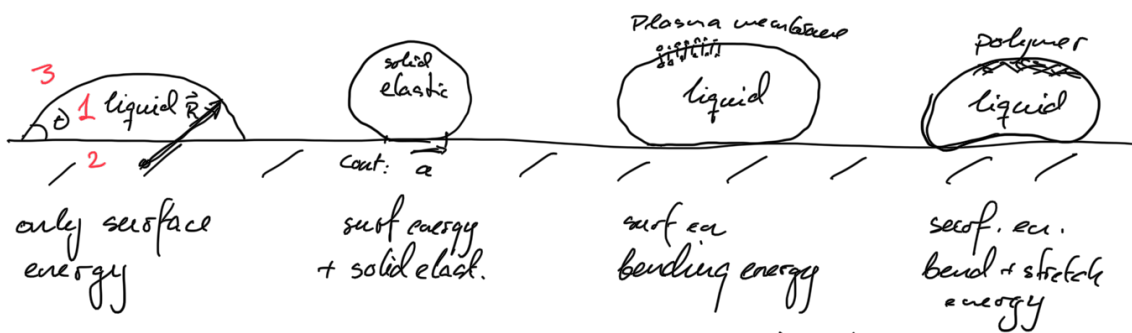 3
θ
1
liquid
R
2
only surface
energy
solid
elastic
cont: a
surf energy
+ solid elast.
Plasma membrane
liquid
surf en
bending energy
polymer
liquid
surf. en.
bend + stretch
energy